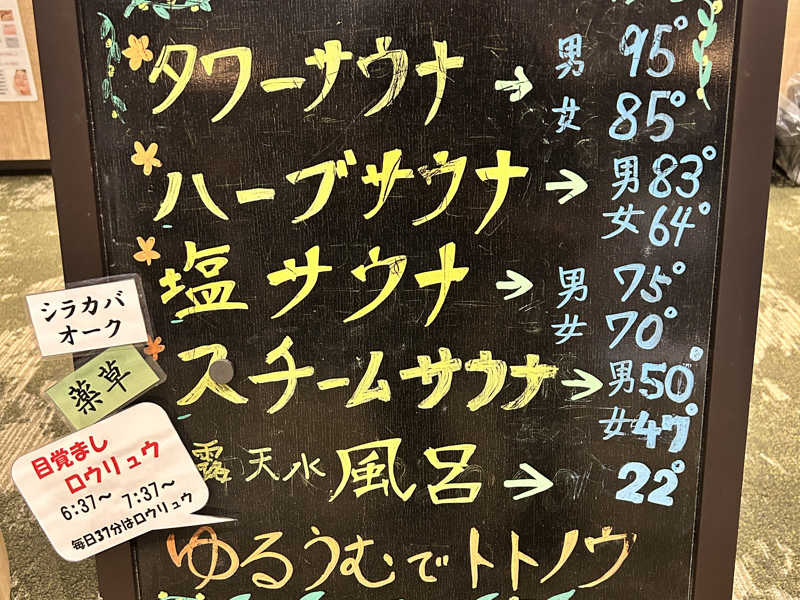 タワーサウナ → 男 95°
女 85°
ハーブサウナ → 男 83°
女 64°
塩サウナ → 男 75°
女 70°
シラカバ
オーク
スチームサウナ → 男 50°
女 47°
薬草
露天水風呂 → 22°
目覚まし
ロウリュウ
6:37~ 7:37~
毎日37分はロウリュウ
ゆるうむでトトノウ